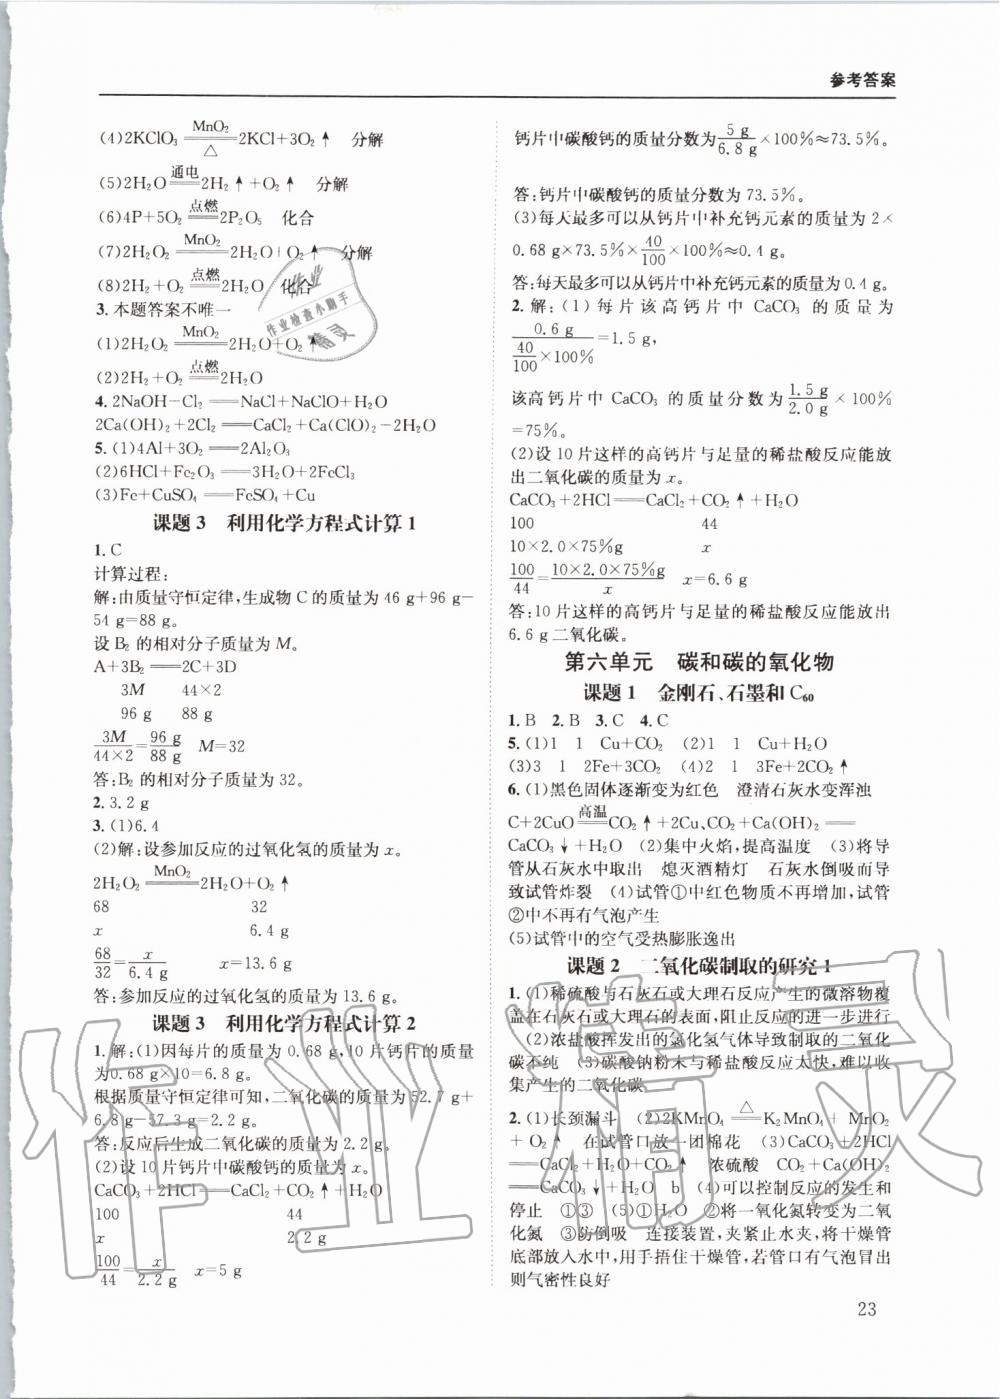 参考答案
(4)2KClO₃ =MnO₂/△= 2KCl+3O₂↑ 分解
(5)2H₂O =通电= 2H₂↑+O₂↑ 分解
(6)4P+5O₂ =点燃= 2P₂O₅ 化合
(7)2H₂O₂ =MnO₂= 2H₂O+O₂↑ 分解
(8)2H₂+O₂ =点燃= 2H₂O 化合
3.本题答案不唯一
(1)2H₂O₂ =MnO₂= 2H₂O+O₂↑
(2)2H₂+O₂ =点燃= 2H₂O
4.2NaOH-Cl₂ == NaCl+NaClO+H₂O
2Ca(OH)₂+2Cl₂ == CaCl₂+Ca(ClO)₂-2H₂O
5.(1)4Al+3O₂ == 2Al₂O₃
(2)6HCl+Fe₂O₃ == 3H₂O+2FeCl₃
(3)Fe+CuSO₄ == FeSO₄+Cu
课题3 利用化学方程式计算1
1.C
计算过程:
解:由质量守恒定律,生成物C的质量为46 g+96 g-
54 g=88 g。
设B₂的相对分子质量为M。
A+3B₂ == 2C+3D
3M 44×2
96 g 88 g
3M/44×2=96 g/88 g M=32
答:B₂的相对分子质量为32。
2.3.2 g
3.(1)6.4
(2)解:设参加反应的过氧化氢的质量为x。
2H₂O₂ =MnO₂= 2H₂O+O₂↑
68 32
x 6.4 g
68/32=x/6.4 g x=13.6 g
答:参加反应的过氧化氢的质量为13.6 g。
课题3 利用化学方程式计算2
1.解:(1)因每片的质量为0.68 g,10片钙片的质量
为0.68 g×10=6.8 g。
根据质量守恒定律可知,二氧化碳的质量为52.7 g+
6.8 g-57.3 g=2.2 g。
答:反应后生成二氧化碳的质量为2.2 g。
(2)设10片钙片中碳酸钙的质量为x。
CaCO₃+2HCl == CaCl₂+CO₂↑+H₂O
100 44
x 2.2 g
100/44=x/2.2 g x=5 g
钙片中碳酸钙的质量分数为5 g/6.8 g×100%≈73.5%。
答:钙片中碳酸钙的质量分数为73.5%。
(3)每天最多可以从钙片中补充钙元素的质量为2×
0.68 g×73.5%×40/100×100%≈0.4 g。
答:每天最多可以从钙片中补充钙元素的质量为0.4 g。
2.解:(1)每片该高钙片中CaCO₃的质量为
0.6 g/(40/100×100%)=1.5 g,
该高钙片中CaCO₃的质量分数为1.5 g/2.0 g×100%
=75%。
(2)设10片这样的高钙片与足量的稀盐酸反应能放
出二氧化碳的质量为x。
CaCO₃+2HCl == CaCl₂+CO₂↑+H₂O
100 44
10×2.0×75%g x
100/44=10×2.0×75%g/x x=6.6 g
答:10片这样的高钙片与足量的稀盐酸反应能放出
6.6 g二氧化碳。
第六单元 碳和碳的氧化物
课题1 金刚石、石墨和C₆₀
1.B 2.B 3.C 4.C
5.(1)1 1 Cu+CO₂ (2)1 1 Cu+H₂O
(3)3 1 2Fe+3CO₂ (4)2 1 3Fe+2CO₂↑
6.(1)黑色固体逐渐变为红色 澄清石灰水变浑浊
C+2CuO =高温= CO₂↑+2Cu、CO₂+Ca(OH)₂ ==
CaCO₃↓+H₂O (2)集中火焰,提高温度 (3)将导
管从石灰水中取出 熄灭酒精灯 石灰水倒吸而导
致试管炸裂 (4)试管①中红色物质不再增加,试管
②中不再有气泡产生
(5)试管中的空气受热膨胀逸出
课题2 二氧化碳制取的研究1
1.(1)稀硫酸与石灰石或大理石反应产生的微溶物覆
盖在石灰石或大理石的表面,阻止反应的进一步进行
(2)浓盐酸挥发出的氯化氢气体导致制取的二氧化
碳不纯 (3)碳酸钠粉末与稀盐酸反应太快,难以收
集产生的二氧化碳
2.(1)长颈漏斗 (2)2KMnO₄ =△= K₂MnO₄+MnO₂
+O₂↑ 在试管口放一团棉花 (3)CaCO₃+2HCl
== CaCl₂+H₂O+CO₂↑ 浓硫酸 CO₂+Ca(OH)₂
== CaCO₃↓+H₂O b (4)可以控制反应的发生和
停止 ①③ (5)①H₂O ②将一氧化氮转变为二氧
化氮 ③防倒吸 连接装置,夹紧止水夹,将干燥管
底部放入水中,用手捂住干燥管,若管口有气泡冒出
则气密性良好
23
作业
作业检查小助手
精灵
作业精灵